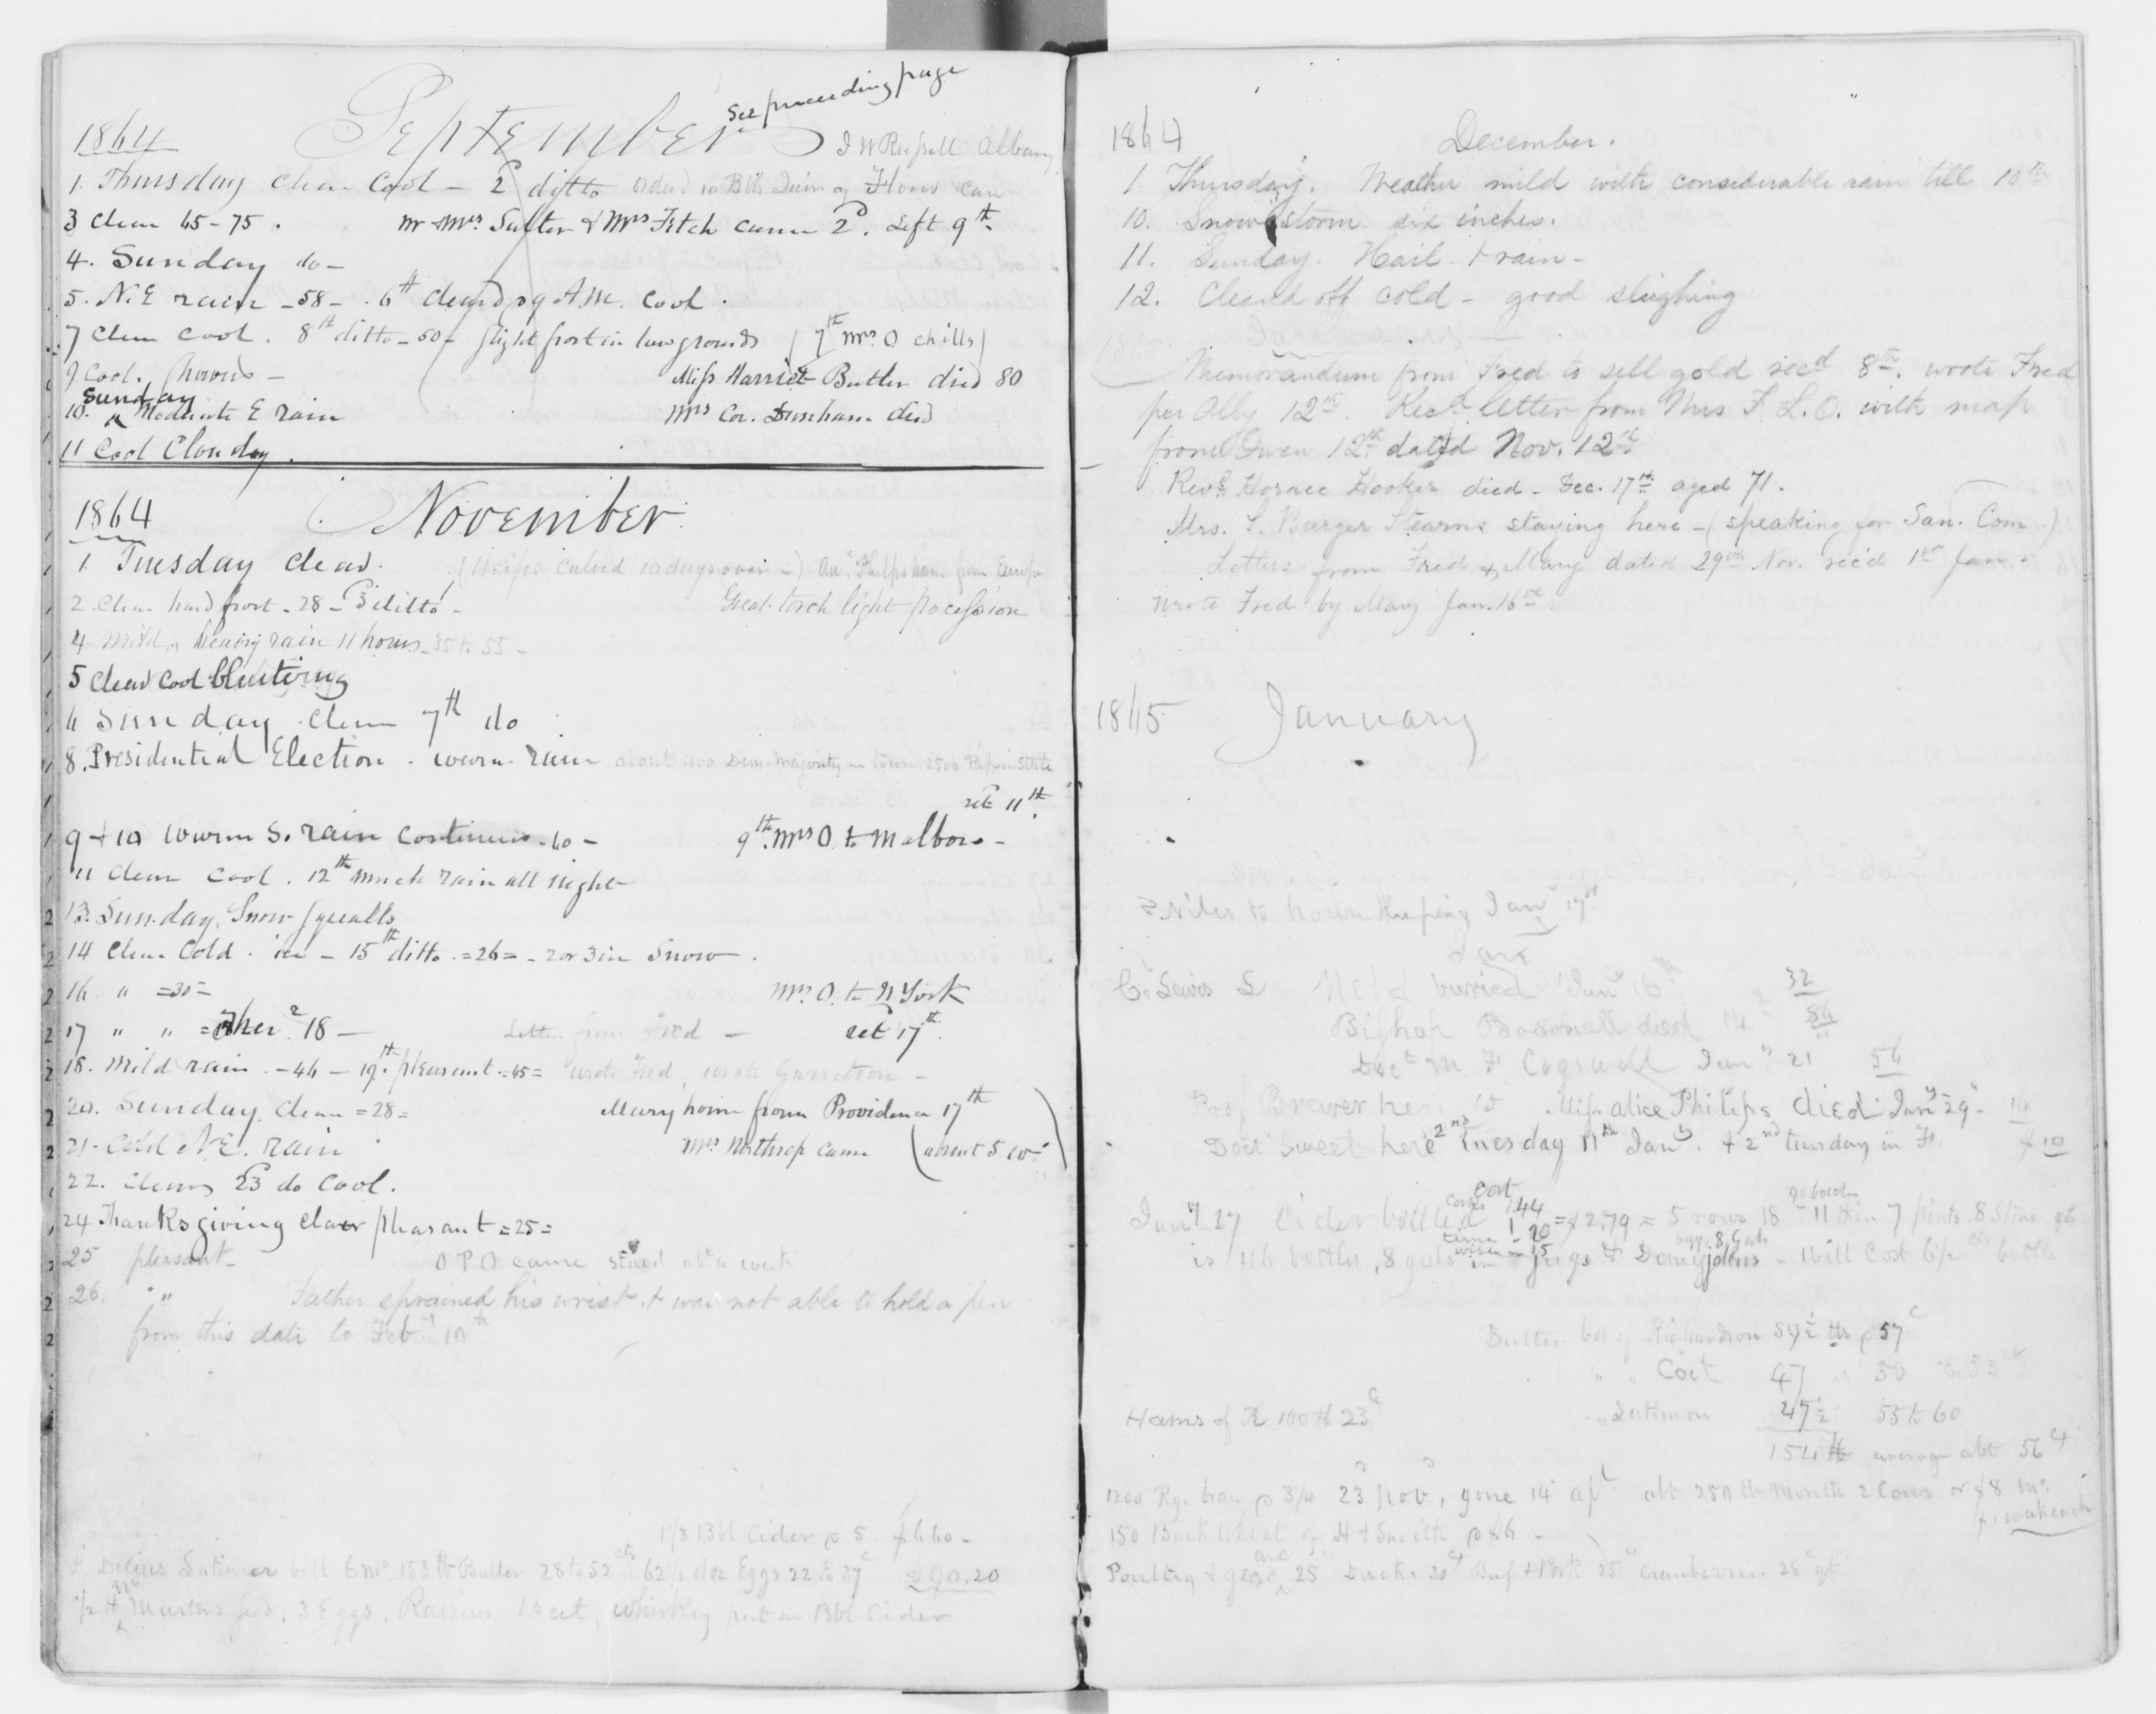 see preceeding page
1864 September J W Russell Albany
1. Thursday clear Cool - 2d ditto orderd 10 Bbls Flour
3 Clear 65-75. Mr & Mrs. Salter & Mrs Fitch came 2d. Left 9th.
4. Sunday do -
5. N.E rain - 58 - . 6th cleard 9 A.M. Cool.
7 Clear Cool. 8th ditto - 50 - slight frost in low grounds (7th Mrs. O. chills)
9 Cool. showers - Miss Harriet Butler died 80
10. Sunday Moderate E rain Mrs Co. Dunham died
11 Cool Clouday.
1864 November
1. Tuesday Clear. (Heifer Calved 10 days over -) Phelps home from Europe
2. Clear hard frost - 28 - 3d ditto - Great torch light procession
4 Mild, heavy rain 11 hours - 35 to 55 -
5 Clear Cool blustering
6 Sunday Clear 7th do
8. Presidential Election - warm rain about 400 Dem Majority in town 2500 Rep in State
ret 11th.
9 + 10 warm S. rain Continues - 60 - 9th. Mrs O. to Malboro -
11 Clear Cool. 12th much rain all night
13. Sunday, Snow squalls
14 Clear Cold. ice - 15th ditto =26= - 2 or 3 in Snow.
16 " =30= Mrs. O. to N York
17 " " = ther 18 - Letter from Fred - ret 17th.
18. mild rain. - 46 - 19th. pleasant =45= wrote Fred, wrote Garretson -
20. Sunday. Clear =28= Mary home from Providence 17th
21 - Cold N.E. rain Mrs. Northrop came (absent 5 w)
22. Clear 23 do Cool.
24 Thanksgiving clear pleasant =25=
25 pleasant - O P O came staid abt a week
26. " " Father sprained his wrist & was not able to hold a pen
from this date to Feby 10th
1/3 Bbl Cider p 5. $6 60 -
bill 6 mo 153 lb Butter 28 to 52 cts Eggs 22 to 37 c $90.20
3 Eggs, Raisins, Whiskey put in Bbl Cider
1864 December.
1 Thursday. Weather mild with considerable rain till 10th
10. Snow storm six inches.
11. Sunday - Hail + rain -
12. Cleard off cold - good sleighing
Memorandum from Fred to sell gold recd 8th. wrote Fred
per Olly 12th. Recd letter from Mrs F. L. O. with map
from Owen 12th dated Nov. 12th
Revd. Horace Hooker died - Dec. 17th aged 71.
Mrs. S. Burger Stearns staying here - (speaking for San. Com.)
Letters from Fred & Mary dated 29th Nov. rec'd 1st Jan -
wrote Fred by Mary Jan. 16th
1865 January
Niles to house Keeping Jany 19th
buried Jany 16 32
Bishop died 14 86
Doct M F Cogswell Jany 21 56
Prof Brewer here 15 Miss Alice Philips died Jany 29 - 10
Doct Sweet here 2nd Tuesday 11th Jany. & 2nd tuesday in F. $10
Jany 27 Cider bottled Cost Corks 1,44 = $2,79 = 5 rows 18 11 thin 7 pints. 8 Stone qts
is 116 bottles, 8 gals in jugs & Demijohns - Will Cost 6 p bottle
Butter bot of Richardson 59 1/2 lbs p 57 c
" Coit 47 50
Hams of R 100 lb 23 c " Latimer 47 1/2 55 to 60
154 lb average abt 56 cts
1200 Rye bran p 3/4 23 Nov, gone 14 apl abt 250 lb month 2 Cows or $8 mo.
150 Buckwheat of H + Smith p $6 - $1 week each
Poultry & geese are 25 Ducks 30 Beef + Pork 25 cranberries 25 qt